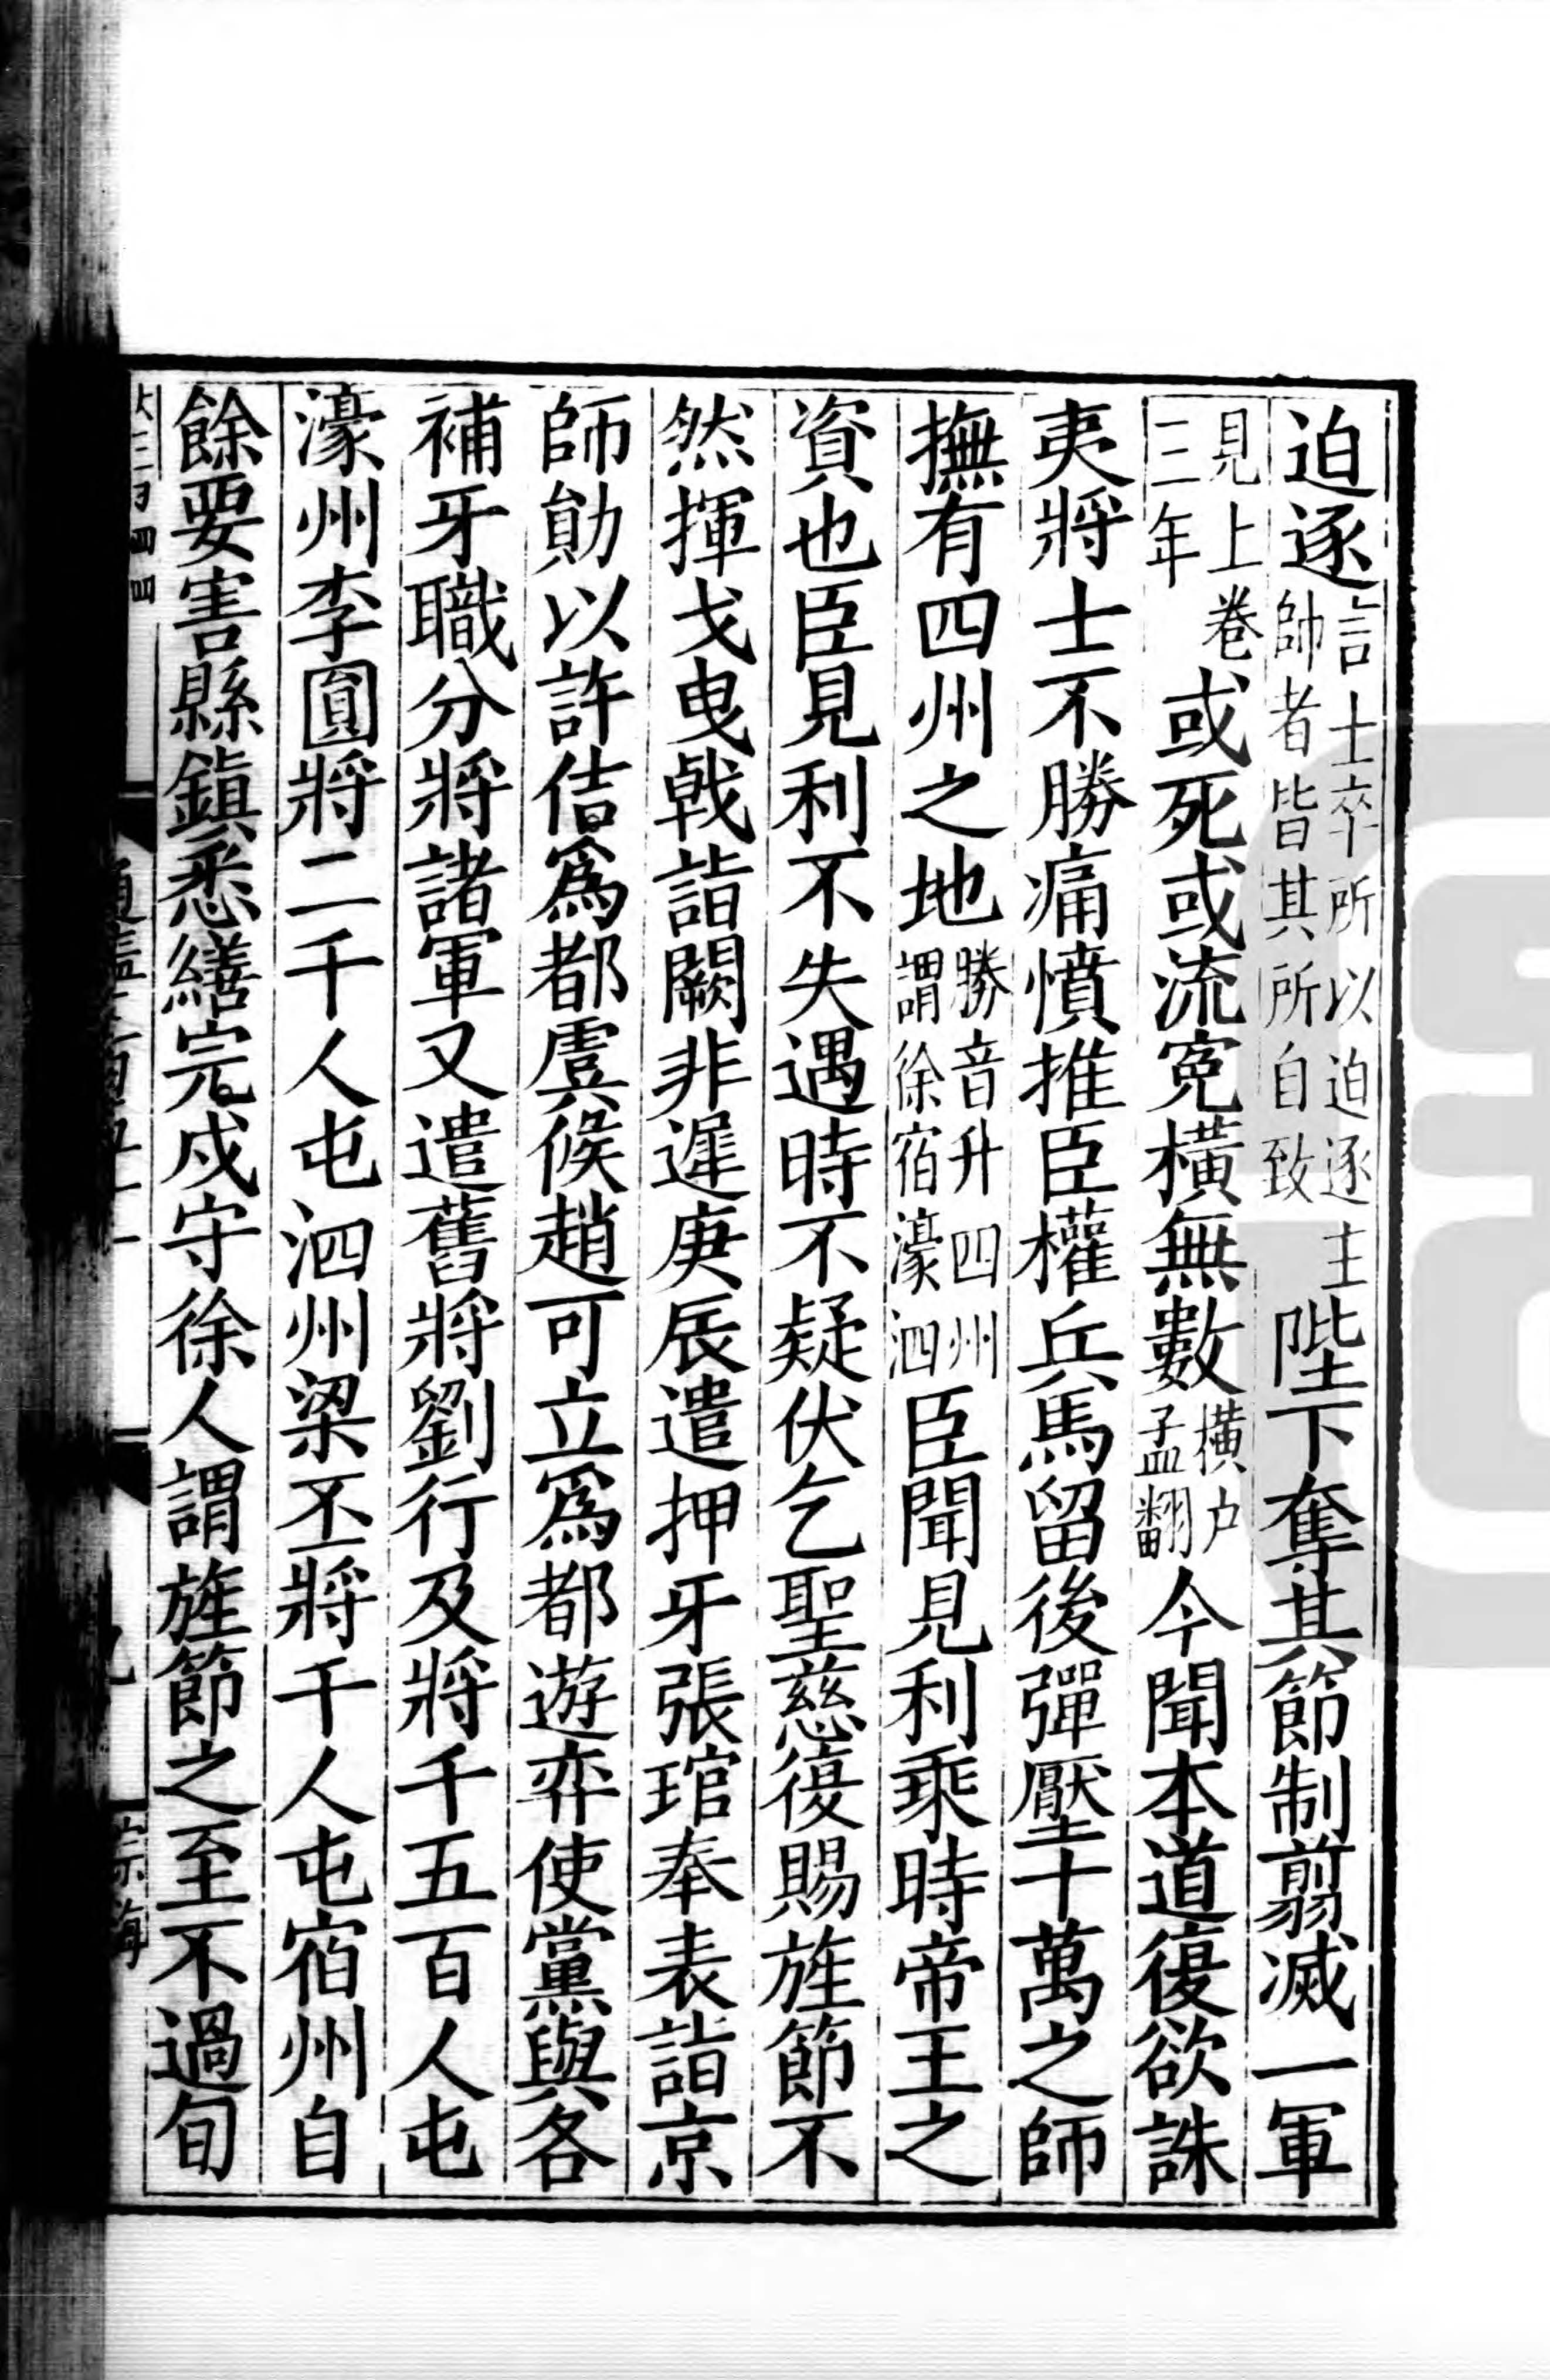 迫逐言士卒所以迫逐主帥者皆其所自致陛下奪其節制翦滅一軍
見上卷三年或死或流寃橫無數橫户孟翻今聞本道復欲誅
夷將士不勝痛憤推臣權兵馬留後彈壓十萬之師
撫有四州之地勝音升四州謂徐宿濠泗臣聞見利乘時帝王之
資也臣見利不失遇時不疑伏乞聖慈復賜旌節不
然揮戈曳戟詣闕非遲庚辰遣押牙張琯奉表詣京
師勛以許佶爲都虞候趙可立爲都遊弈使黨與各
補牙職分將諸軍又遣舊將劉行及將千五百人屯
濠州李圓將二千人屯泗州梁丕將千人屯宿州自
餘要害縣鎮悉繕完戍守徐人謂旌節之至不過旬